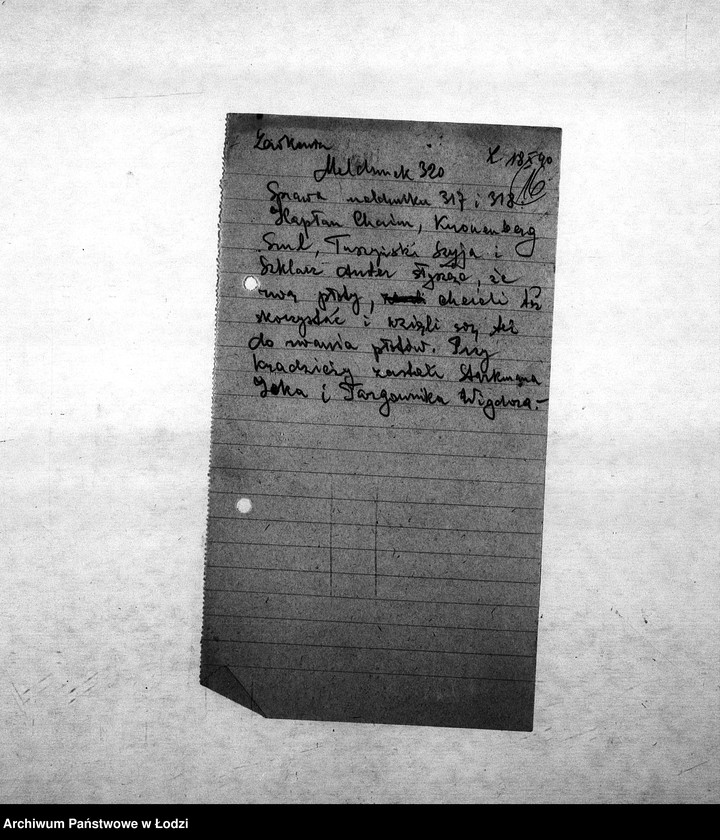 Meldunek 320
Sprawa meldunku 317 i 318
16
Kapłan Chaim, Kronenberg
Szul, Tuszyński Szyja i
Szklarz słysząc, że
rwą płoty, chcieli też
skorzystać i wzięli się też
do rwania płotów. Przy
kradzieży zastali Starkmana
Icka i Targownika Wigdora.-
Archiwum Państwowe w Łodzi